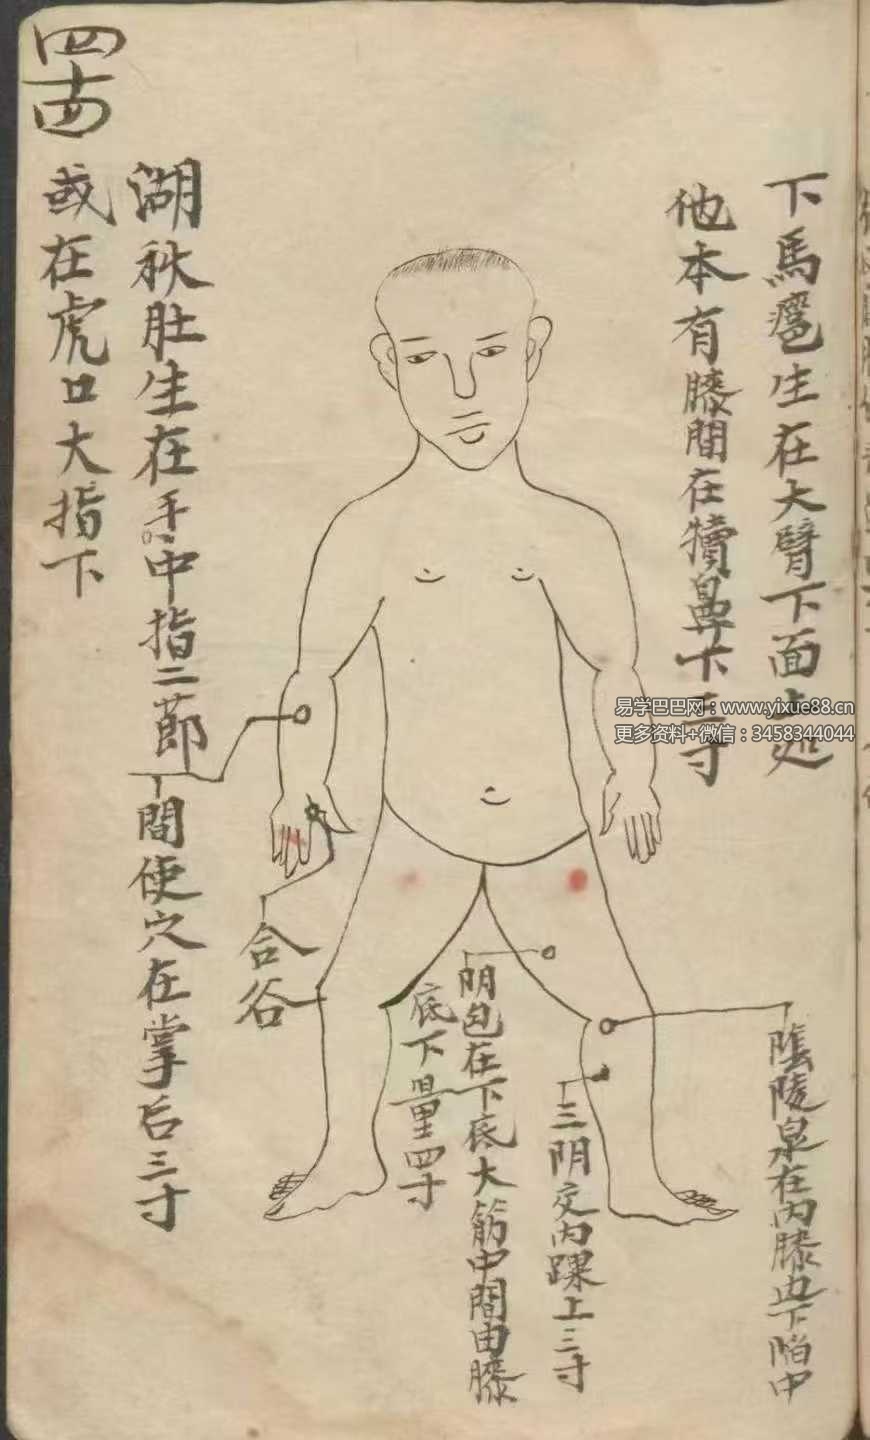 四十四
下馬癰生在大臂下面上処
他本有膝間在犢鼻下二寸
湖秋肚生在手中指二節
或在虎口大指下
間使穴在掌后三寸
合谷
陰陵泉在内膝边下陷中
三阴交内踝上三寸
阴包在下底大筋中間由膝
底下量四寸
易学巴巴网：www.yixue88.cn
更多资料+微信：3458344044